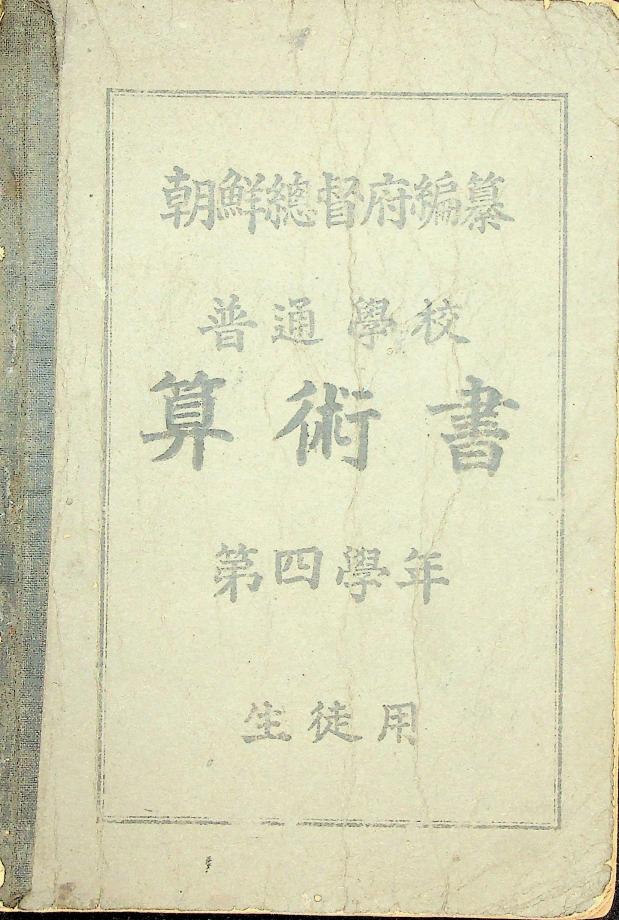 朝鮮總督府編纂
普通學校
算術書
第四學年
生徒用